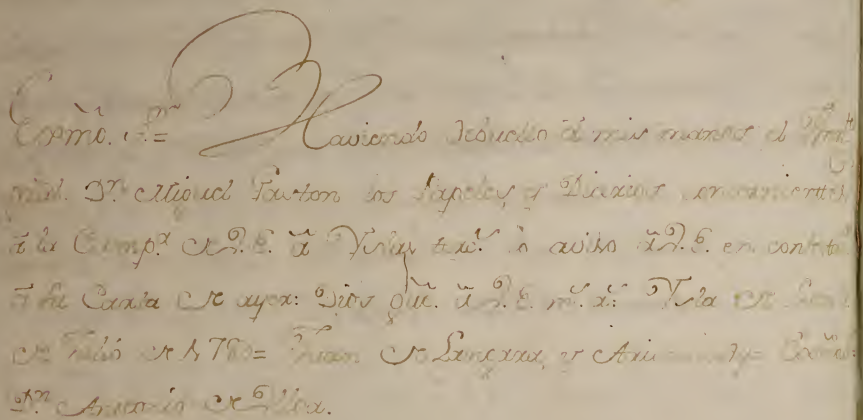 Exmo. Sr.= Haviendo debuelto á mis manos el
D.n Miguel Gaston los Papeles y Diarios concernientes
á la Camp.a de V. E. á lo aviso á V. E. en contest.
á su Carta de ayer: Dios gũe. á V. E. m.s a.s Ysla de Leon
de de 1780= Juan de Langara, y = Exmo.
D.n Antonio de Ulloa.